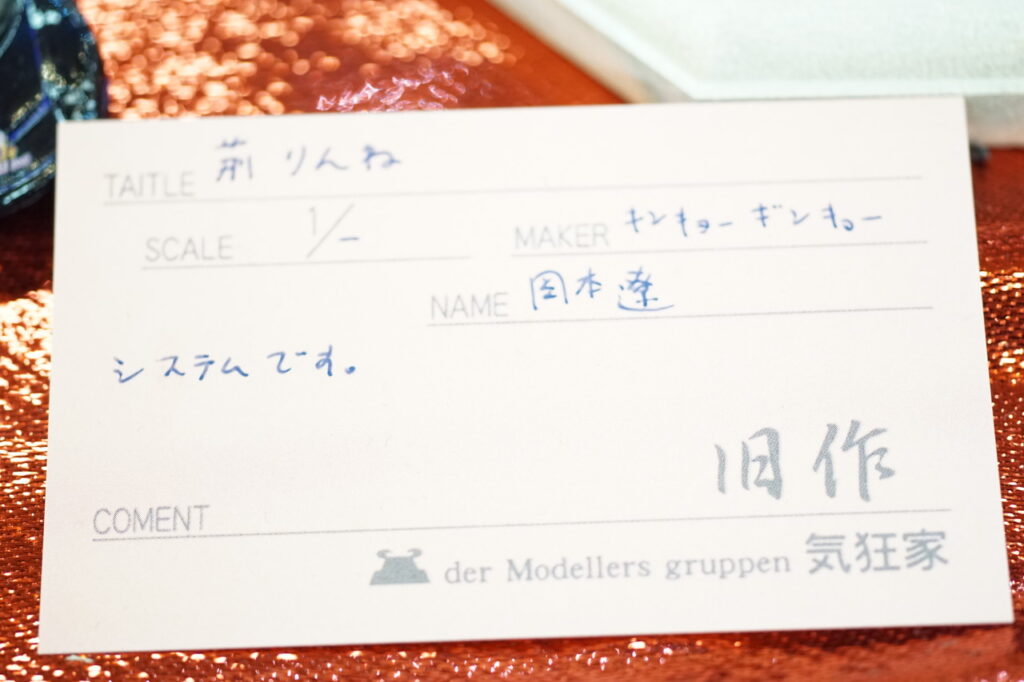 TAITLE 荊 りんね
SCALE 1/− MAKER キンキョーギンキョー
NAME 岡本遼
システムです。
旧作
COMENT
der Modellers gruppen 気狂家